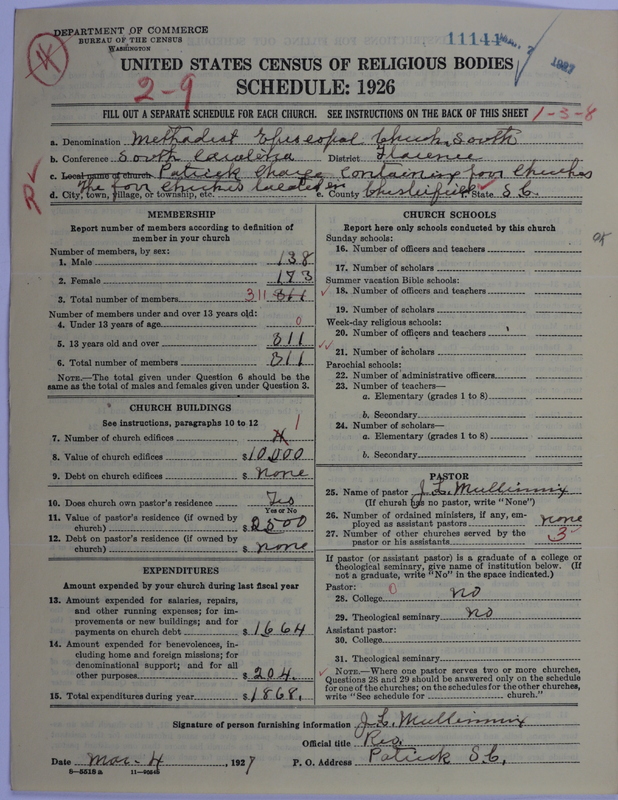 DEPARTMENT OF COMMERCE
BUREAU OF THE CENSUS
WASHINGTON
11144
1927
UNITED STATES CENSUS OF RELIGIOUS BODIES
2-9
SCHEDULE: 1926
FILL OUT A SEPARATE SCHEDULE FOR EACH CHURCH. SEE INSTRUCTIONS ON THE BACK OF THIS SHEET
1-3-8
a. Denomination Methodist Episcopal Church, South
b. Conference South Carolina District Florence
c. Local name of church Patrick Charge Containing four Churches
d. City, town, village, or township, etc. The four Churches located in e. County Chesterfield f. State S.C.
R
MEMBERSHIP
Report number of members according to definition of
member in your church
Number of members, by sex:
1. Male 138
2. Female 173
3. Total number of members 311 311
Number of members under and over 13 years old:
4. Under 13 years of age 0
5. 13 years old and over 311
6. Total number of members 311
NOTE.—The total given under Question 6 should be the
same as the total of males and females given under Question 3.
CHURCH BUILDINGS
See instructions, paragraphs 10 to 12
7. Number of church edifices 4 1
8. Value of church edifices $10,000
9. Debt on church edifices $ none
10. Does church own pastor's residence Yes
Yes or No
11. Value of pastor's residence (if owned by
church) $2500
12. Debt on pastor's residence (if owned by
church) $ none
EXPENDITURES
Amount expended by your church during last fiscal year
13. Amount expended for salaries, repairs,
and other running expenses; for im-
provements or new buildings; and for
payments on church debt $1664
14. Amount expended for benevolences, in-
cluding home and foreign missions; for
denominational support; and for all
other purposes $204.
15. Total expenditures during year $1868.
CHURCH SCHOOLS
Report here only schools conducted by this church
Sunday schools:
16. Number of officers and teachers
OK
17. Number of scholars
Summer vacation Bible schools:
18. Number of officers and teachers
19. Number of scholars
Week-day religious schools:
20. Number of officers and teachers
21. Number of scholars
Parochial schools:
22. Number of administrative officers
23. Number of teachers—
a. Elementary (grades 1 to 8)
b. Secondary
24. Number of scholars—
a. Elementary (grades 1 to 8)
b. Secondary
PASTOR
25. Name of pastor J. L. Mullinnix
(If church has no pastor, write "None")
26. Number of ordained ministers, if any, em-
ployed as assistant pastors none
27. Number of other churches served by the
pastor or his assistants 3
If pastor (or assistant pastor) is a graduate of a college or
theological seminary, give name of institution below. (If
not a graduate, write "No" in the space indicated.)
Pastor: 0
28. College no
29. Theological seminary no
Assistant pastor:
30. College
31. Theological seminary
NOTE.—Where one pastor serves two or more churches,
Questions 28 and 29 should be answered only on the schedule
for one of the churches; on the schedules for the other churches,
write "See schedule for church."
Signature of person furnishing information J. L. Mullinnix
Official title Rev.
Date Mar. 4, 1927 P. O. Address Patrick S.C.
8—5518 a 11—90845